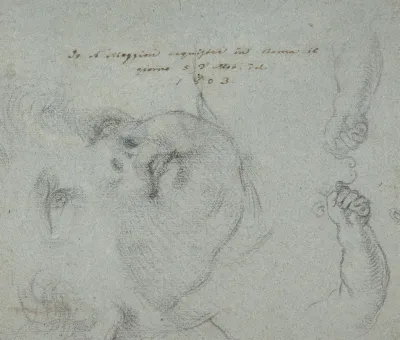 Io A Maggiori acquistai in Roma il
giorno 8 d'
1803.